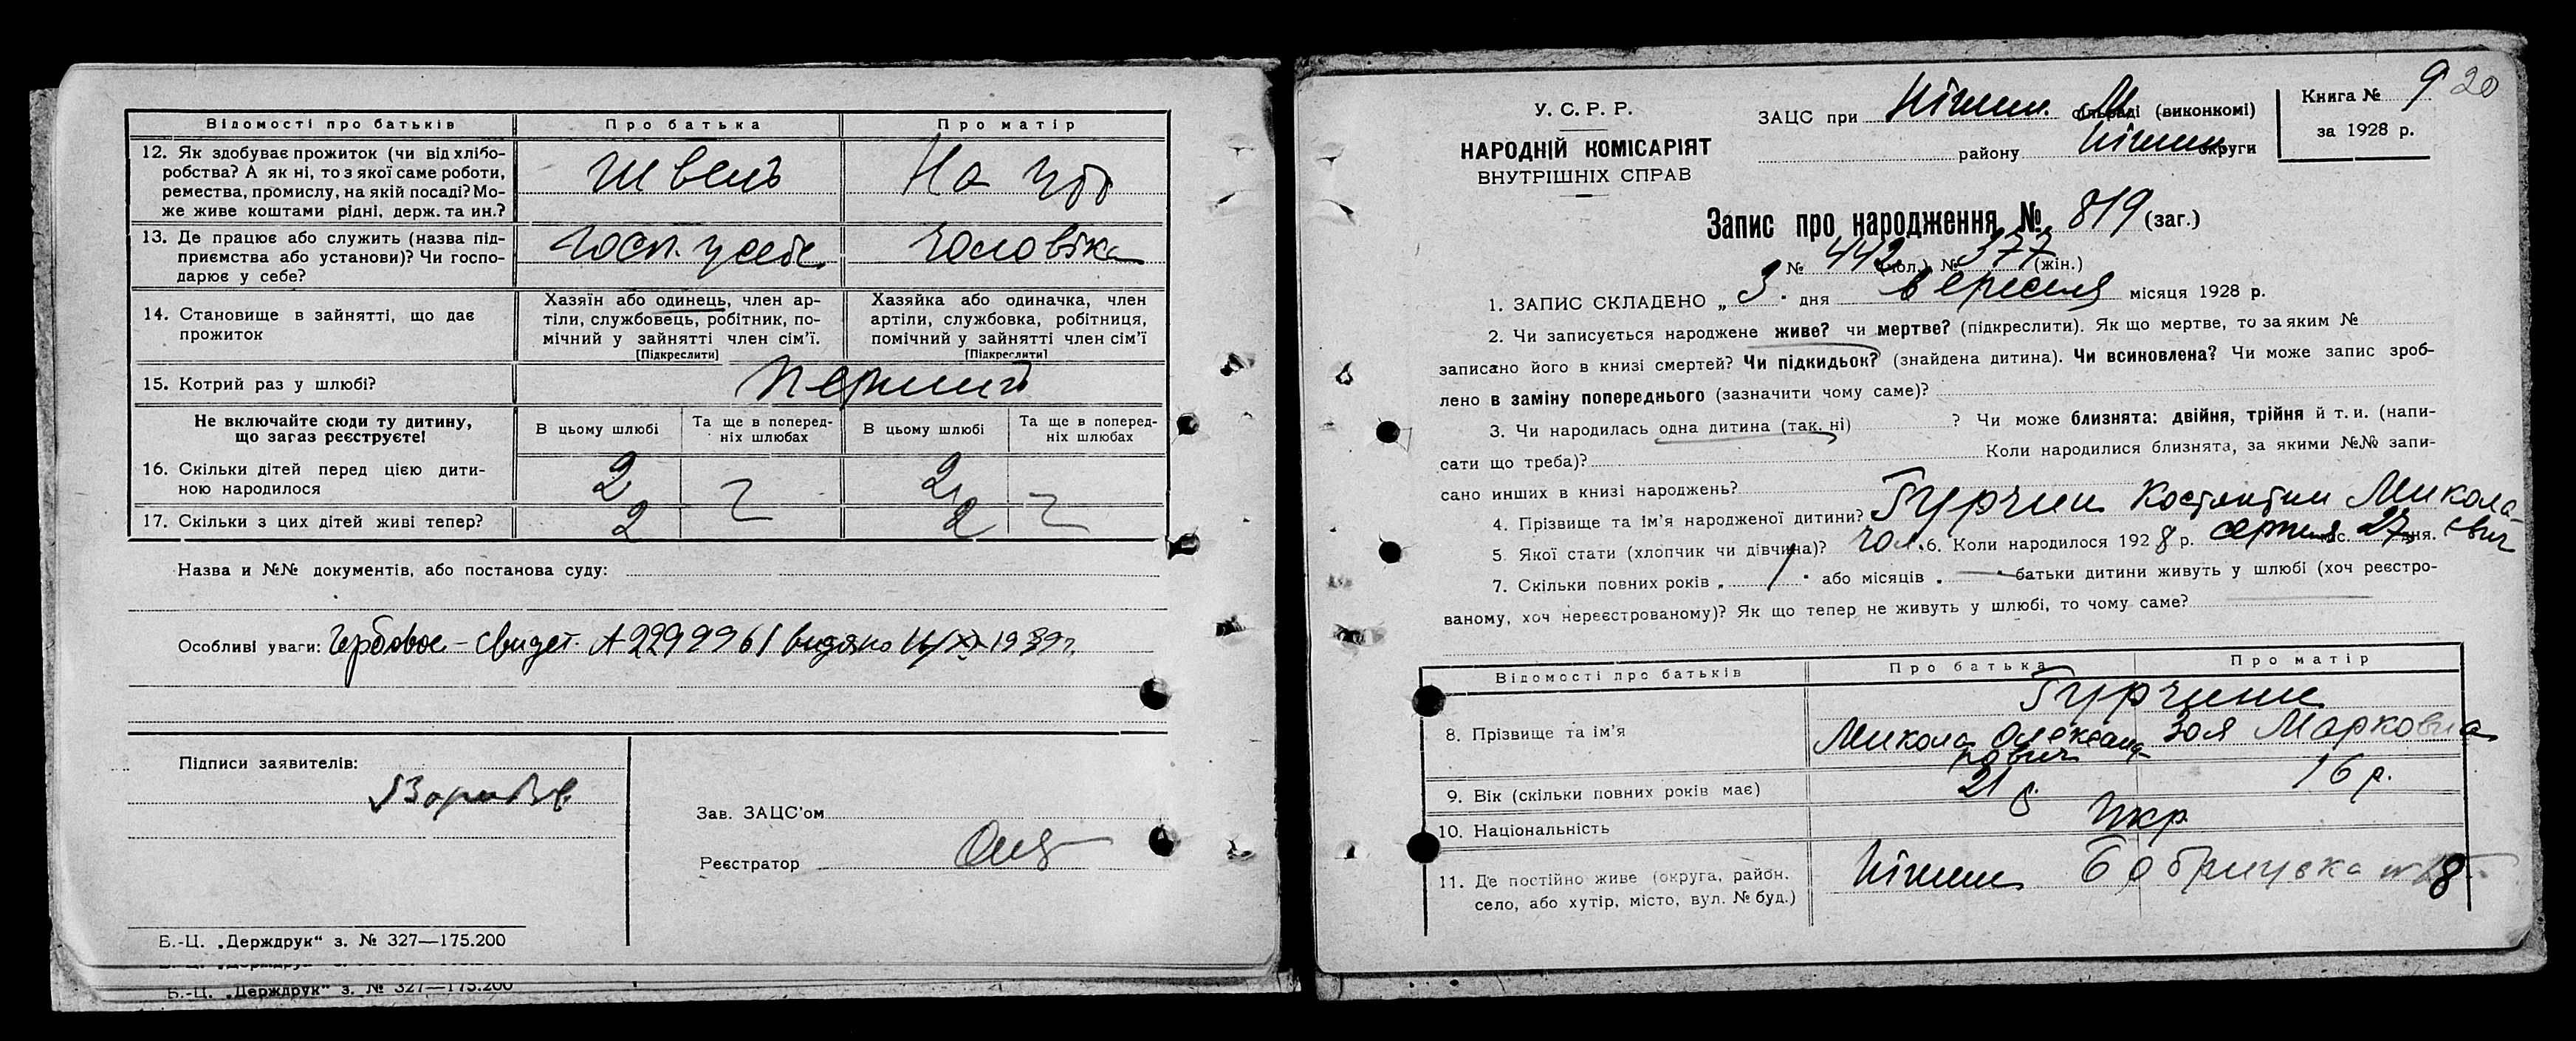 Відомості про батьків Про батька Про матір
12. Як здобуває прожиток (чи від хлібо-
робства? А як ні, то з якої саме роботи,
ремества, промислу, на якій посаді? Мо-
же живе коштами рідні, держ. та ин.?
Швець На утр
13. Де працює або служить (назва під-
приємства або установи)? Чи госпо-
дарює у себе?
Госп. у себе чоловіка
14. Становище в зайнятті, що дає
прожиток
Хазяїн або одинець, член ар-
тіли, службовець, робітник, по-
мічний у зайнятті член сім'ї.
[Підкреслити]
Хазяйка або одиначка, член
артіли, службовка, робітниця,
помічний у зайнятті член сім'ї
[Підкреслити]
15. Котрий раз у шлюбі?
Не включайте сюди ту дитину,
що зараз реєструєте!
В цьому шлюбі Та ще в поперед-
ніх шлюбах В цьому шлюбі Та ще в поперед-
ніх шлюбах
16. Скільки дітей перед цією дити-
ною народилося 2 2
17. Скільки з цих дітей живі тепер? 2 2
Назва и №№ документів, або постанова суду:
Особливі уваги: Гербовое свидет. А 2299961 видано 1939 г.
Підписи заявителів:
Зав. ЗАЦС'ом
Реєстратор
Б.-Ц. „Держдрук“ з. № 327—175.200
Б.-Ц. „Держдрук“ з. № 327—175.200
У. С. Р. Р.
НАРОДНІЙ КОМІСАРІЯТ
ВНУТРІШНІХ СПРАВ
ЗАЦС при Ніжин. М сільраді (виконкомі)
району Ніжин округи
Книга № 9 20
за 1928 р.
Запис про народження № 819 (заг.)
№ 442 (чол.) № 377 (жін.)
1. ЗАПИС СКЛАДЕНО „ 3 “ дня вересня місяця 1928 р.
2. Чи записується народжене живе? чи мертве? (підкреслити). Як що мертве, то за яким №
записано його в книзі смертей? Чи підкидьок? (знайдена дитина). Чи всиновлена? Чи може запис зроб-
лено в заміну попереднього (зазначити чому саме)?
3. Чи народилась одна дитина (так. ні) ? Чи може близнята: двійня, трійня й т. и. (напи-
сати що треба)? Коли народилися близнята, за якими №№ запи-
сано инших в книзі народжень?
4. Прізвище та ім'я народженої дитини? Гурчин Костянтин Микола-
євич
5. Якої стати (хлопчик чи дівчина)? чол. 6. Коли народилося 1928 р. серпня міс. 27 дня.
7. Скільки повних років „ 1 “ або місяців „ — “ батьки дитини живуть у шлюбі (хоч реєстро-
ваному, хоч нереєстрованому)? Як що тепер не живуть у шлюбі, то чому саме?
Відомості про батьків Про батька Про матір
Гурчини
8. Прізвище та ім'я Микола Олександ
рович Зоя Марковна
9. Вік (скільки повних років має) 21 р. 16 р.
10. Національність Укр
11. Де постійно живе (округа, район.
село, або хутір, місто, вул. № буд.)
Ніжин Бобрицька 8